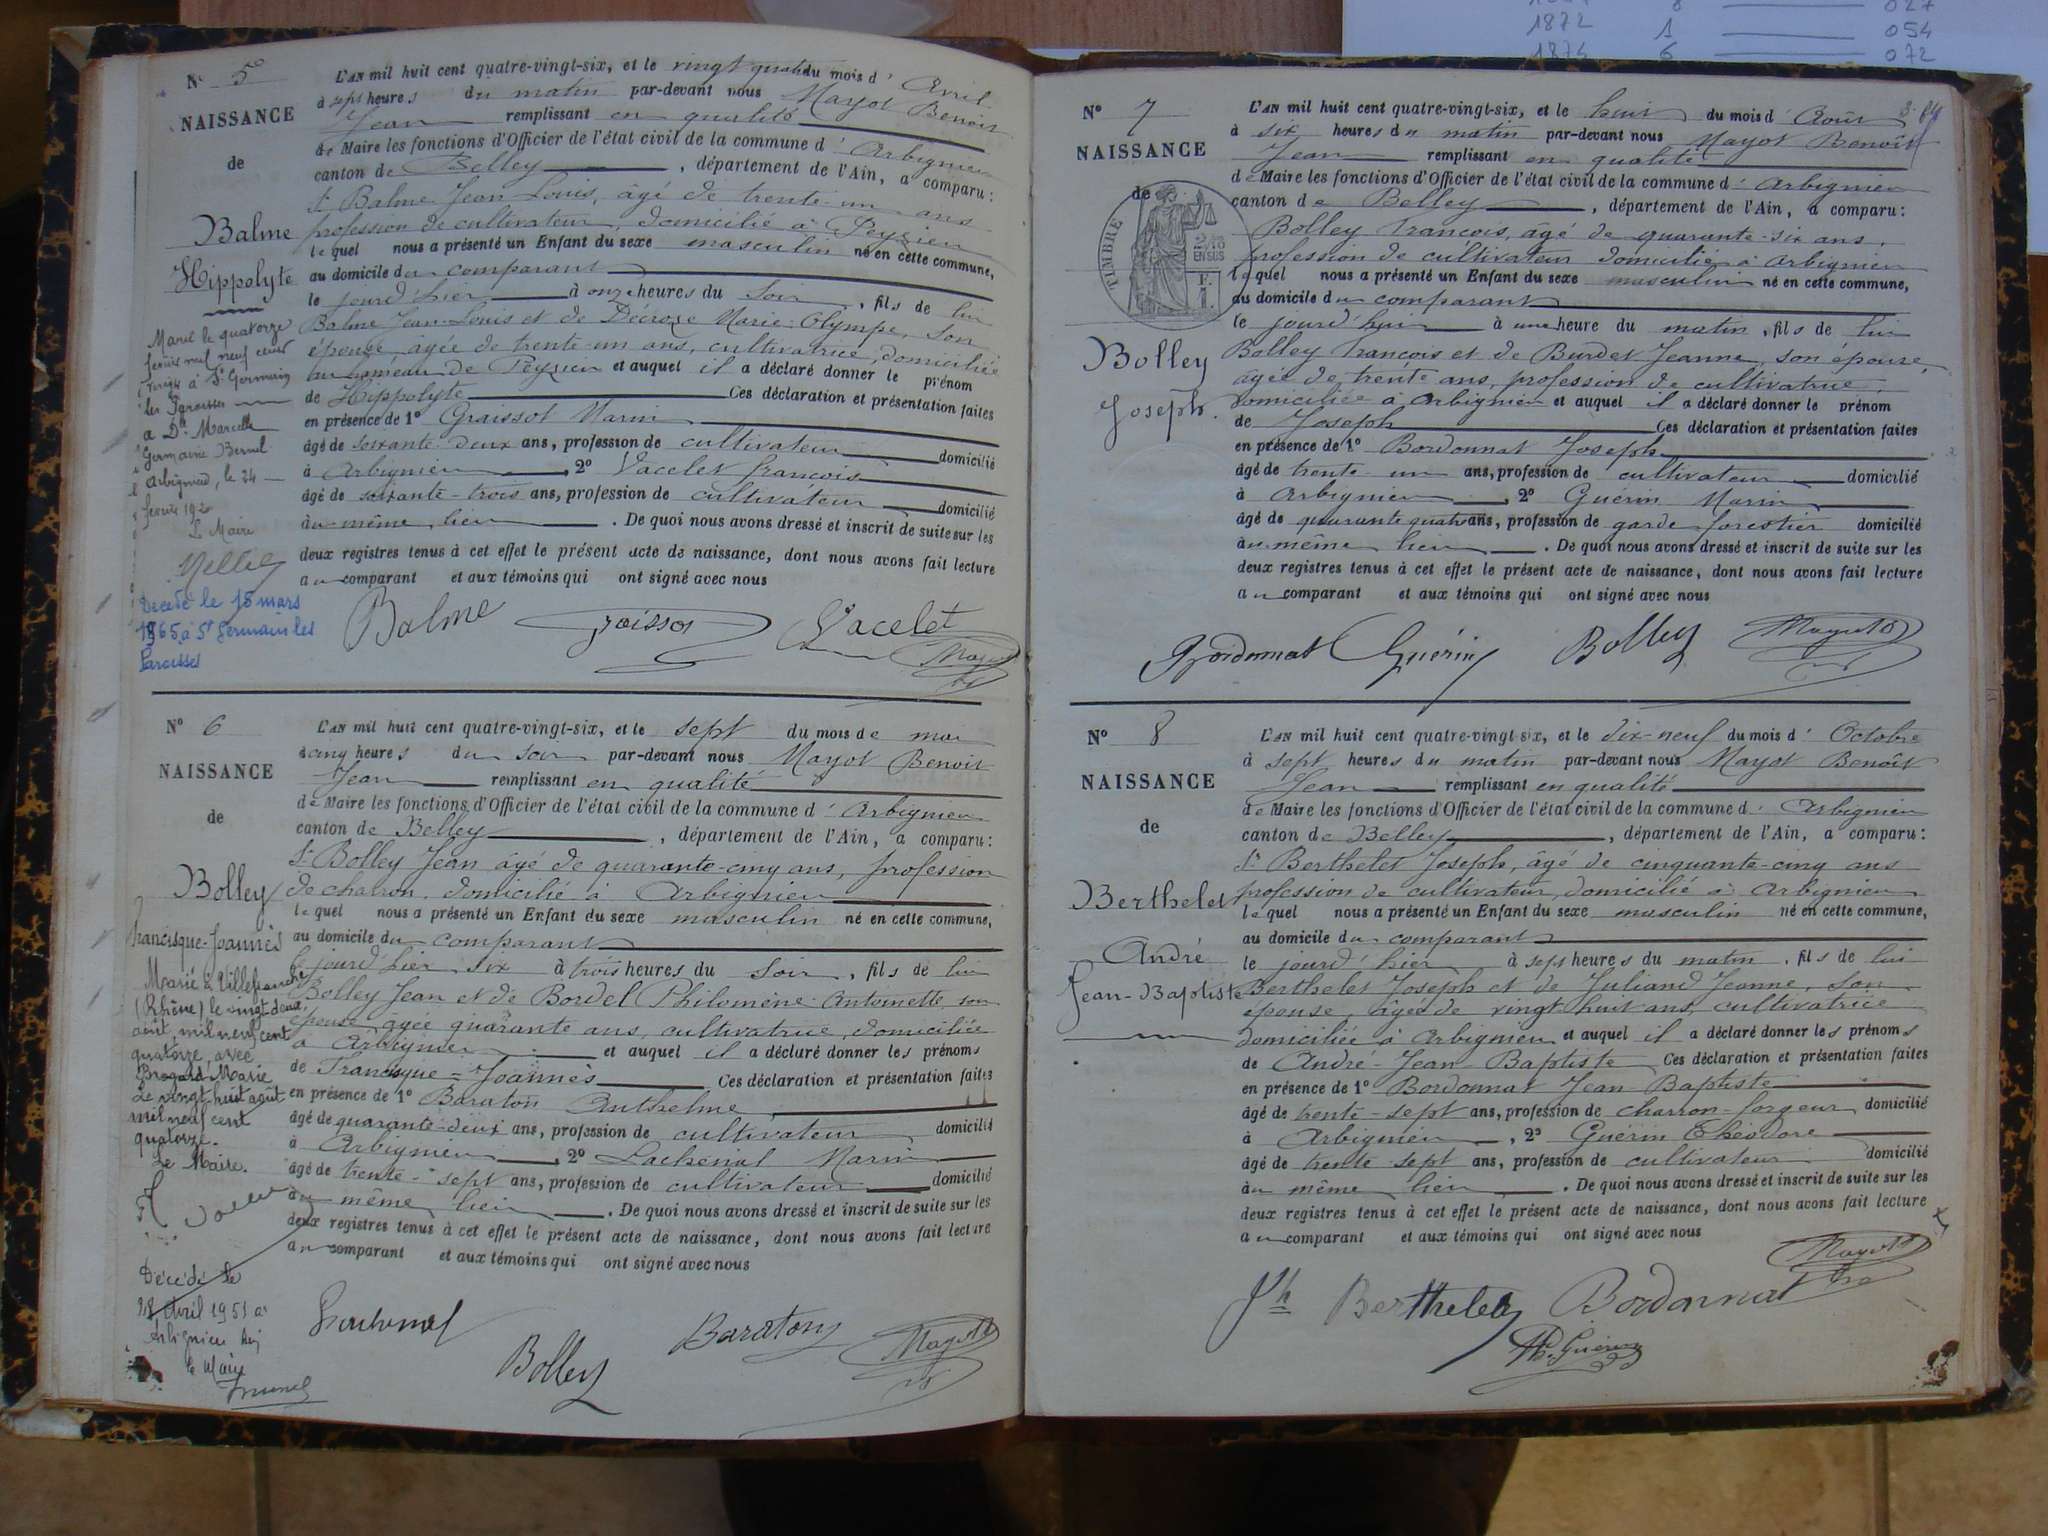 1872 1 054
1874 6 072
N° 5
NAISSANCE
de
Balme
Hippolyte
L'AN mil huit cent quatre-vingt-six, et le vingt quatre du mois d'Avril
à sept heures du matin par-devant nous Mayot Benoit
Jean remplissant en qualité
de Maire les fonctions d'Officier de l'état civil de la commune d'Arbignieu
canton de Belley, département de l'Ain, a comparu:
Sr Balme Jean Louis, âgé de trente-un ans
profession de cultivateur, domicilié à Peyzieu
lequel nous a présenté un Enfant du sexe masculin né en cette commune,
au domicile du comparant
le jourd'hier à onze heures du soir, fils de lui
Balme Jean-Louis et de Décroze Marie-Olympe, son
épouse, âgée de trente-un ans, cultivatrice, domiciliée
au hameau de Peyzieu et auquel il a déclaré donner le prénom
de Hippolyte Ces déclaration et présentation faites
en présence de 1° Graissot Marin
âgé de soixante-deux ans, profession de cultivateur domicilié
à Arbignieu, 2° Vacelet françois
âgé de soixante-trois ans, profession de cultivateur domicilié
au même lieu. De quoi nous avons dressé et inscrit de suite sur les
deux registres tenus à cet effet le présent acte de naissance, dont nous avons fait lecture
au comparant et aux témoins qui ont signé avec nous
Marié le quatorze
février mil neuf cent
vingt à St Germain
les Paroisses
a Dlle Marcelle
Germaine
Arbignieu, le 24
février 192
Le Maire
Décédé le 15 mars
1965 à St Germain les
Paroisses
Balme Vacelet
N° 6
NAISSANCE
de
Bolley
Francisque-Joannès
L'AN mil huit cent quatre-vingt-six, et le sept du mois de mai
à cinq heures du soir par-devant nous Mayot Benoit
Jean remplissant en qualité
de Maire les fonctions d'Officier de l'état civil de la commune d'Arbignieu
canton de Belley, département de l'Ain, a comparu:
Sr Bolley Jean âgé de quarante-cinq ans, profession
de charron, domicilié à Arbignieu
lequel nous a présenté un Enfant du sexe masculin né en cette commune,
au domicile du comparant
le jourd'hier six à trois heures du soir, fils de lui
Bolley Jean et de Bordel Philomène-Antoinette son
épouse, âgée quarante ans, cultivatrice, domiciliée
à Arbignieu et auquel il a déclaré donner les prénoms
de Francisque=Joannès Ces déclaration et présentation faites
en présence de 1° Baraton Anthelme
âgé de quarante-deux ans, profession de cultivateur domicilié
à Arbignieu, 2° Lachenal Marin
âgé de trente-sept ans, profession de cultivateur domicilié
au même lieu. De quoi nous avons dressé et inscrit de suite sur les
deux registres tenus à cet effet le présent acte de naissance, dont nous avons fait lecture
au comparant et aux témoins qui ont signé avec nous
Marié à Villefranche
(Rhône) le vingt-deux
août mil neuf cent
quatorze, avec
Brogard Marie
Le vingt-huit août
mil neuf cent
quatorze.
Le Maire.
Décédé le
28 Avril 1951 à
Arbignieu
le Maire
Lachenal
Bolley Baraton Mayot B
N° 7
NAISSANCE
de
TIMBRE
2/10 EN SUS
F. 1.
Bolley
Joseph.
L'AN mil huit cent quatre-vingt-six, et le huit du mois d'Août
à six heures du matin par-devant nous Mayot Benoît
Jean remplissant en qualité
de Maire les fonctions d'Officier de l'état civil de la commune d'Arbignieu
canton de Belley, département de l'Ain, a comparu:
Bolley françois, âgé de quarante-six ans,
profession de cultivateur domicilié à Arbignieu
lequel nous a présenté un Enfant du sexe masculin né en cette commune,
au domicile du comparant
le jourd'hui à une heure du matin, fils de lui
Bolley françois et de Burdet Jeanne, son épouse,
âgée de trente ans, profession de cultivatrice
domiciliée à Arbignieu et auquel il a déclaré donner le prénom
de Joseph Ces déclaration et présentation faites
en présence de 1° Bordonnat Joseph
âgé de trente un ans, profession de cultivateur domicilié
à Arbignieu, 2° Guérin Marin
âgé de quarante quatre ans, profession de garde forestier domicilié
au même lieu. De quoi nous avons dressé et inscrit de suite sur les
deux registres tenus à cet effet le présent acte de naissance, dont nous avons fait lecture
au comparant et aux témoins qui ont signé avec nous
Bordonnat Guérin Bolley Mayot B
N° 8
NAISSANCE
de
Berthelet
André
Jean-Baptiste
L'AN mil huit cent quatre-vingt-six, et le dix-neuf du mois d'Octobre
à sept heures du matin par-devant nous Mayot Benoît
Jean remplissant en qualité
de Maire les fonctions d'Officier de l'état civil de la commune d'Arbignieu
canton de Belley, département de l'Ain, a comparu:
Sr Berthelet Joseph, âgé de cinquante-cinq ans
profession de cultivateur, domicilié à Arbignieu
lequel nous a présenté un Enfant du sexe masculin né en cette commune,
au domicile du comparant
le jourd'hier à sept heures du matin, fils de lui
Berthelet Joseph et de Juliand Jeanne, son
épouse, âgée de vingt huit ans, cultivatrice
domiciliée à Arbignieu et auquel il a déclaré donner les prénoms
de André-Jean-Baptiste Ces déclaration et présentation faites
en présence de 1° Bordonnat Jean-Baptiste
âgé de trente-sept ans, profession de charron-forgeur domicilié
à Arbignieu, 2° Guérin Théodore
âgé de trente-sept ans, profession de cultivateur domicilié
au même lieu. De quoi nous avons dressé et inscrit de suite sur les
deux registres tenus à cet effet le présent acte de naissance, dont nous avons fait lecture
au comparant et aux témoins qui ont signé avec nous
Mayot B
Jh Berthelet Bordonnat
Th Guérin